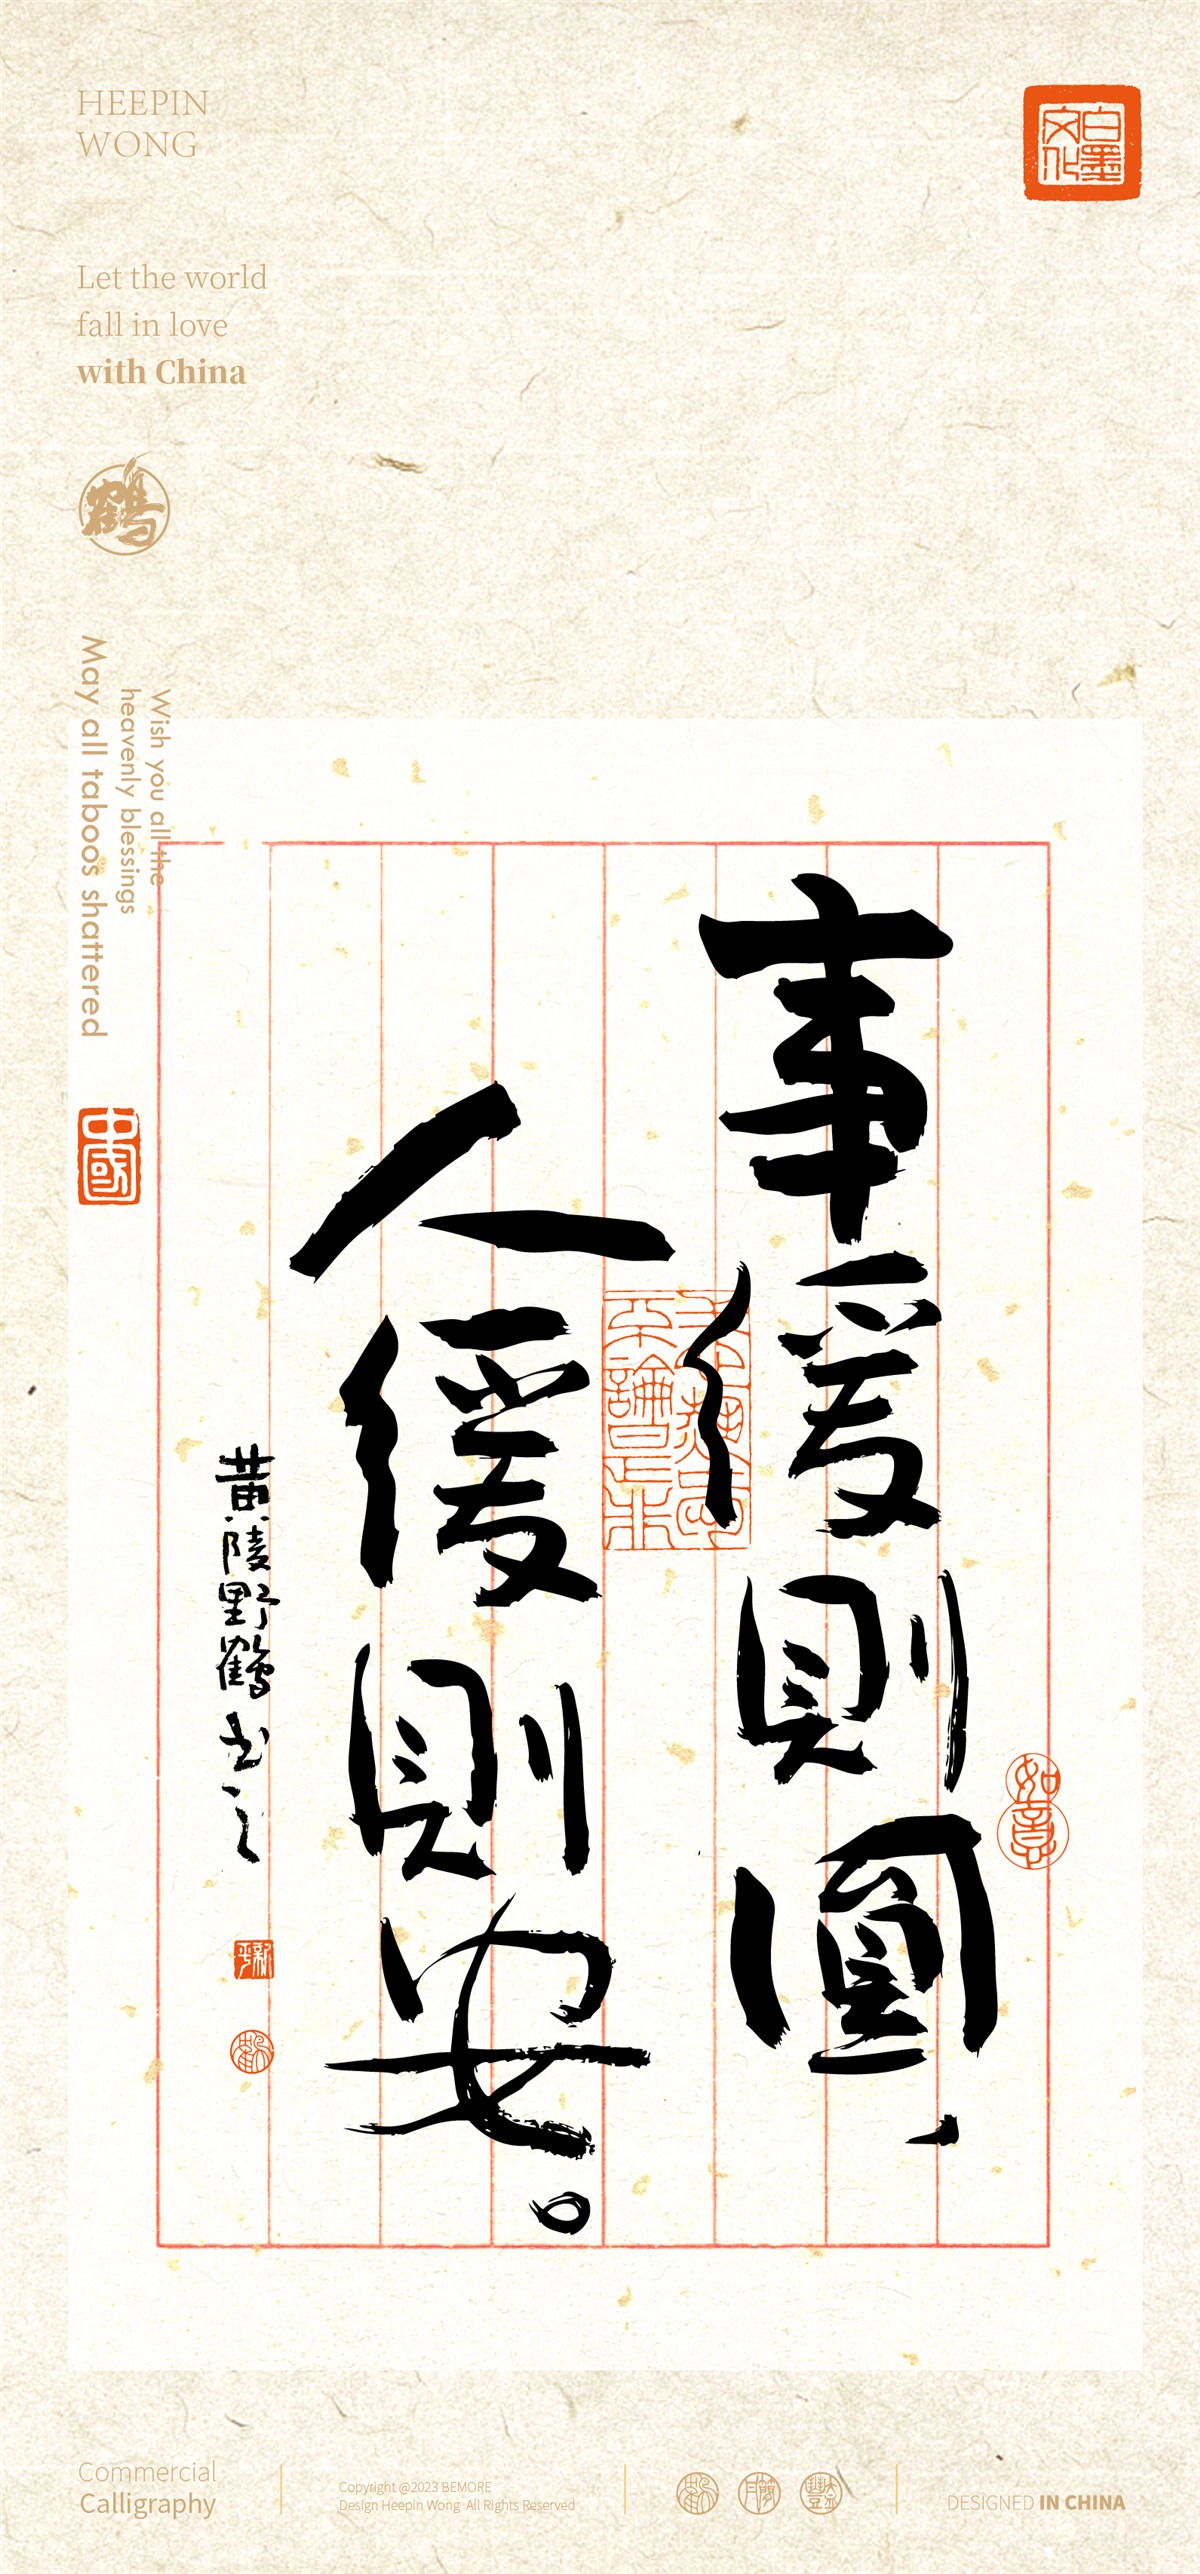 HEEPIN
WONG
白墨
文化
Let the world
fall in love
with China
鹤
Wish you all the
heavenly blessings
May all taboos shattered
中國
事缓则圆，
人缓则安。
如意
黄陵野鹤书之
Commercial
Calligraphy
Copyright @2023 BEMORE
Design Heepin Wong All Rights Reserved
DESIGNED IN CHINA